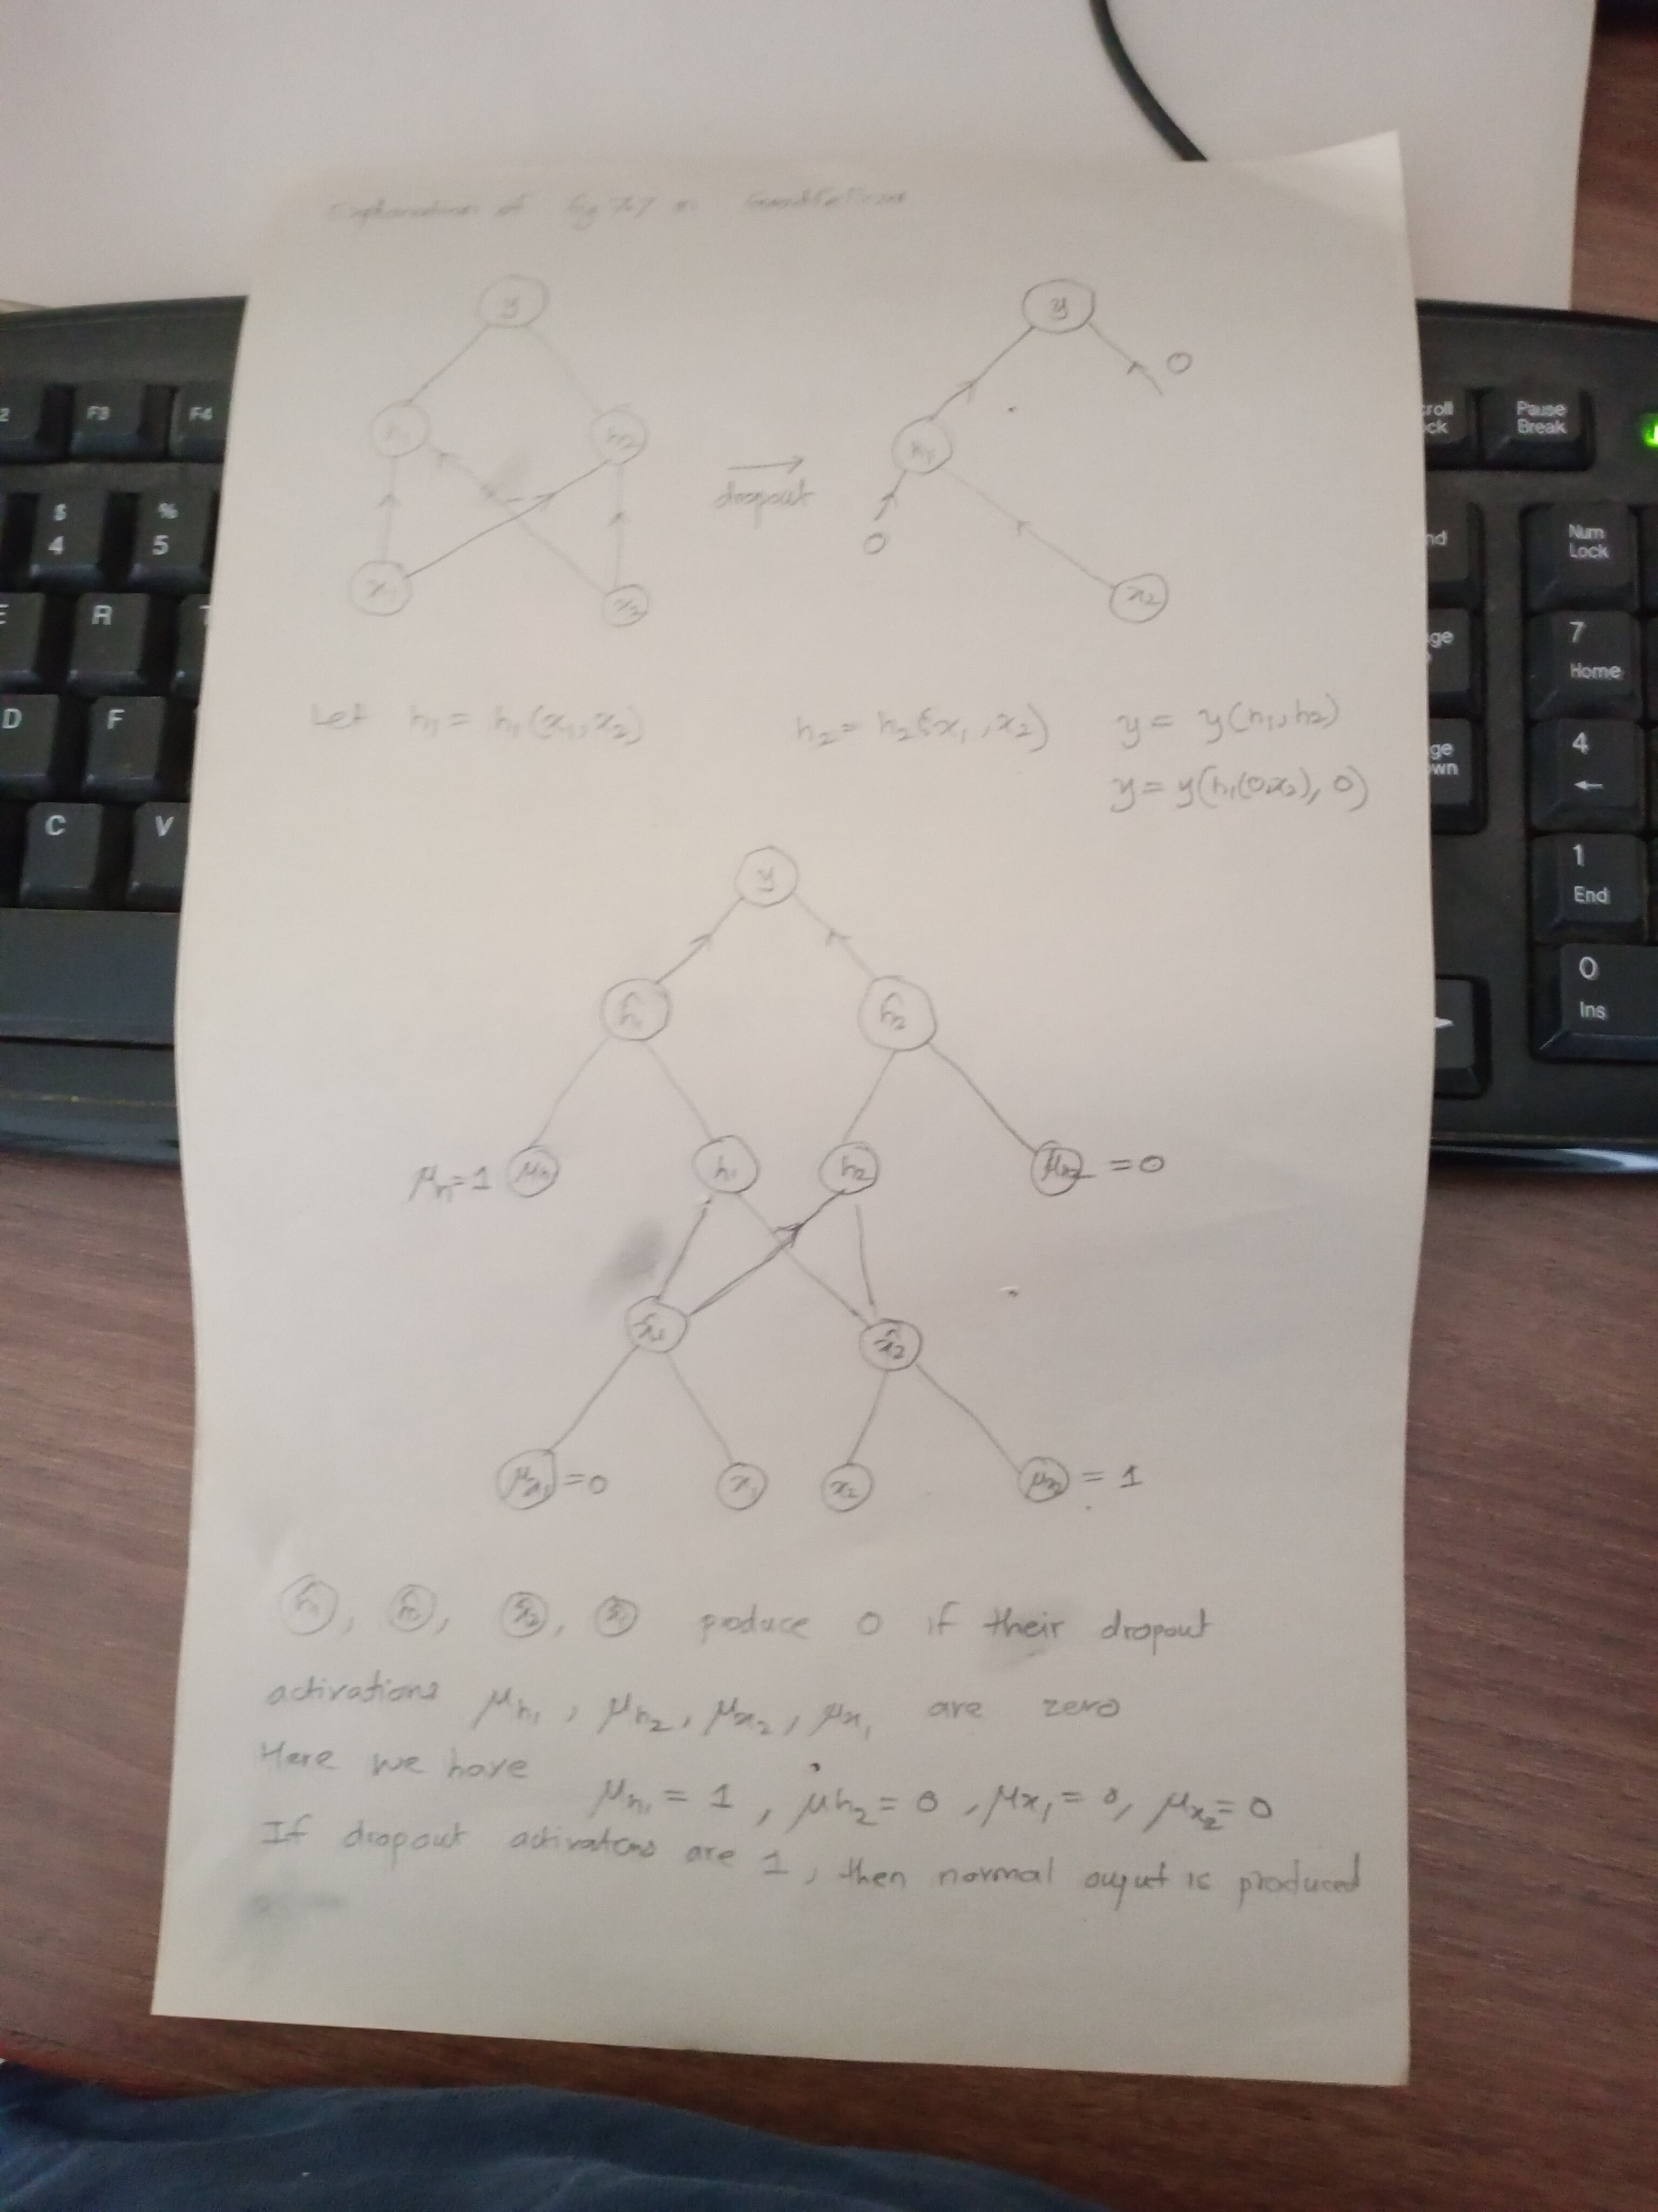 Explanation of fig 7.7 in Goodfellow
y
y
0
h1
h2
h1
dropout
0
x1
x2
x2
Let h1 = h1(x1, x2) h2 = h2(x1, x2) y = y(h1, h2)
y = y(h1(0,x2), 0)
y
ĥ1
ĥ2
μh=1 μh1 h1 h2 μh2 = 0
x̂1
x̂2
μx1 = 0 x1 x2 μx2 = 1
ĥ1, ĥ2, x̂2, x̂1 produce 0 if their dropout
activations μh1, μh2, μx2, μx1 are zero
Here we have
μh1 = 1, μh2 = 0, μx1 = 0, μx2 = 0
If dropout activations are 1, then normal ouput is produced
F3
F4
$
4
%
5
E
R
T
D
F
C
V
croll
ck
Pause
Break
nd
Num
Lock
ge
7
Home
ge
own
4
←
1
End
0
Ins